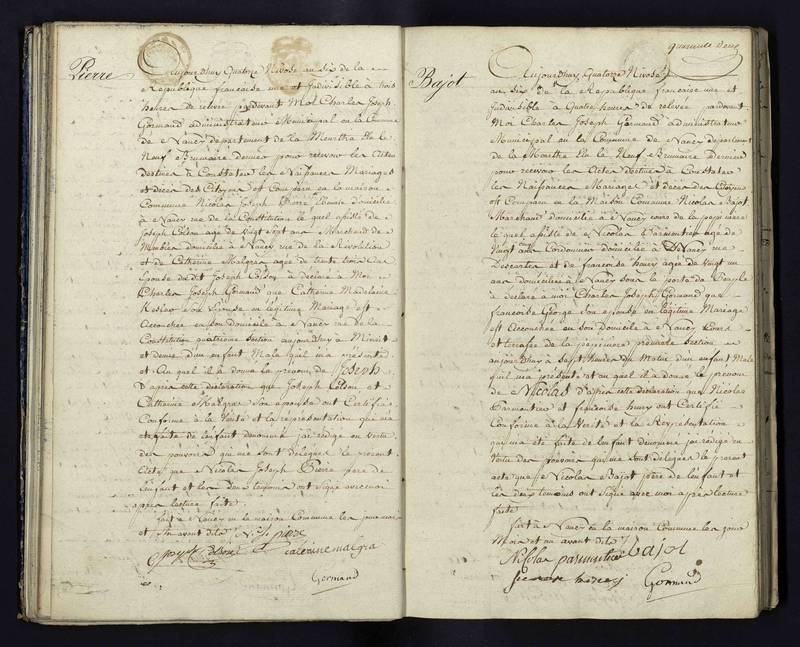 Pierre
Aujourdhuy Quatorze Nivose an six de la
Republique francaise une et Indivisible à trois
heures de relevée pardevant Moi Charles Joseph
Gormand administrateur Municipal en la Commune
de Nancy departement de la Meurthe Elu le
Neuf Brumaire dernier pour recevoir les Actes
destinés à Constater les Naissances Mariages
et décès des Citoyens est Comparu en la maison
Commune Nicolas Joseph Pierre domicilié
à Nancy rue de la Constitution le quel assisté de
Joseph Colson age de vingt sept ans Marchand de
Meubles domicilié à Nancy rue de la Révolution
et de Catherine Malgra agée de trente trois ans
Epouse dudit Joseph Colson à déclaré à Moi
Charles Joseph Gormand que Catherine Madelaine
son Epouse en légitime Mariage est
Accouchée en son domicile à Nancy rue de la
Constitution quatrieme section aujourdhuy à Minuit
et demie d'un enfant Male quil m'a présenté
et Au quel il à donné le prenom de Joseph
D'après cette déclaration que Joseph Colson et
Catherine Malgra Son épouse ont Certifié
Conforme à la Vérité et la représentation qui m'a
été faite de l'enfant denommé j'ai rédigé en vertu
des pouvoirs qui me sont délégués le présent
Acte que Nicolas Joseph Pierre père de
l'enfant et les deux temoins ont signé avec moi
après lecture faite
fait à Nancy en la maison Commune les jour mois
et an avant dits N. J. pierre
catherine malgra
Gormand
quarante deux
Bajot
Aujourdhuy Quatorze Nivose
an six de la Republique francaise une et
Indivisible à Quatre heures de relevée pardevant
Moi Charles Joseph Gormand administrateur
Municipal en la Commune de Nancy departement
de la Meurthe Elu le Neuf Brumaire dernier
pour recevoir les Actes destinés à Constater
les Naissances Mariages et décès des Citoyens
est Comparu en la Maison Commune Nicolas Bajot
Marchand domicilié à Nancy cours de la pepiniere
le quel assisté de Nicolas Parmentier age de
vingt ans Cordonnier domicilié à Nancy rue
Descartes et de francoise henry agée de vingt un
ans domiciliée à Nancy sous la porte du Peuple
à déclaré à moi Charles Joseph Gormand que
francoise George Son epouse en légitime Mariage
est Accouchée en Son Domicile à Nancy Cours
et terrasse de la pepiniere premiere section
aujourdhuy à Sept heures du Matin d'un enfant Male
quil m'a présenté et au quel il à donné le prenom
de Nicolas D'apres cette déclaration que Nicolas
Parmentier et francoise henry ont Certifié
Conforme à la Vérité et la Représentation
qui m'a été faite de l'enfant denommé j'ai rédigé en
Vertu des pouvoirs qui me sont délégués le présent
acte que Nicolas Bajot père de l'enfant et
les deux temoins ont signé avec moi apres lecture
faite
fait à Nancy en la maison Commune les jour
Mois et an avant dits
Nicolas parmentier bajot
Gormand